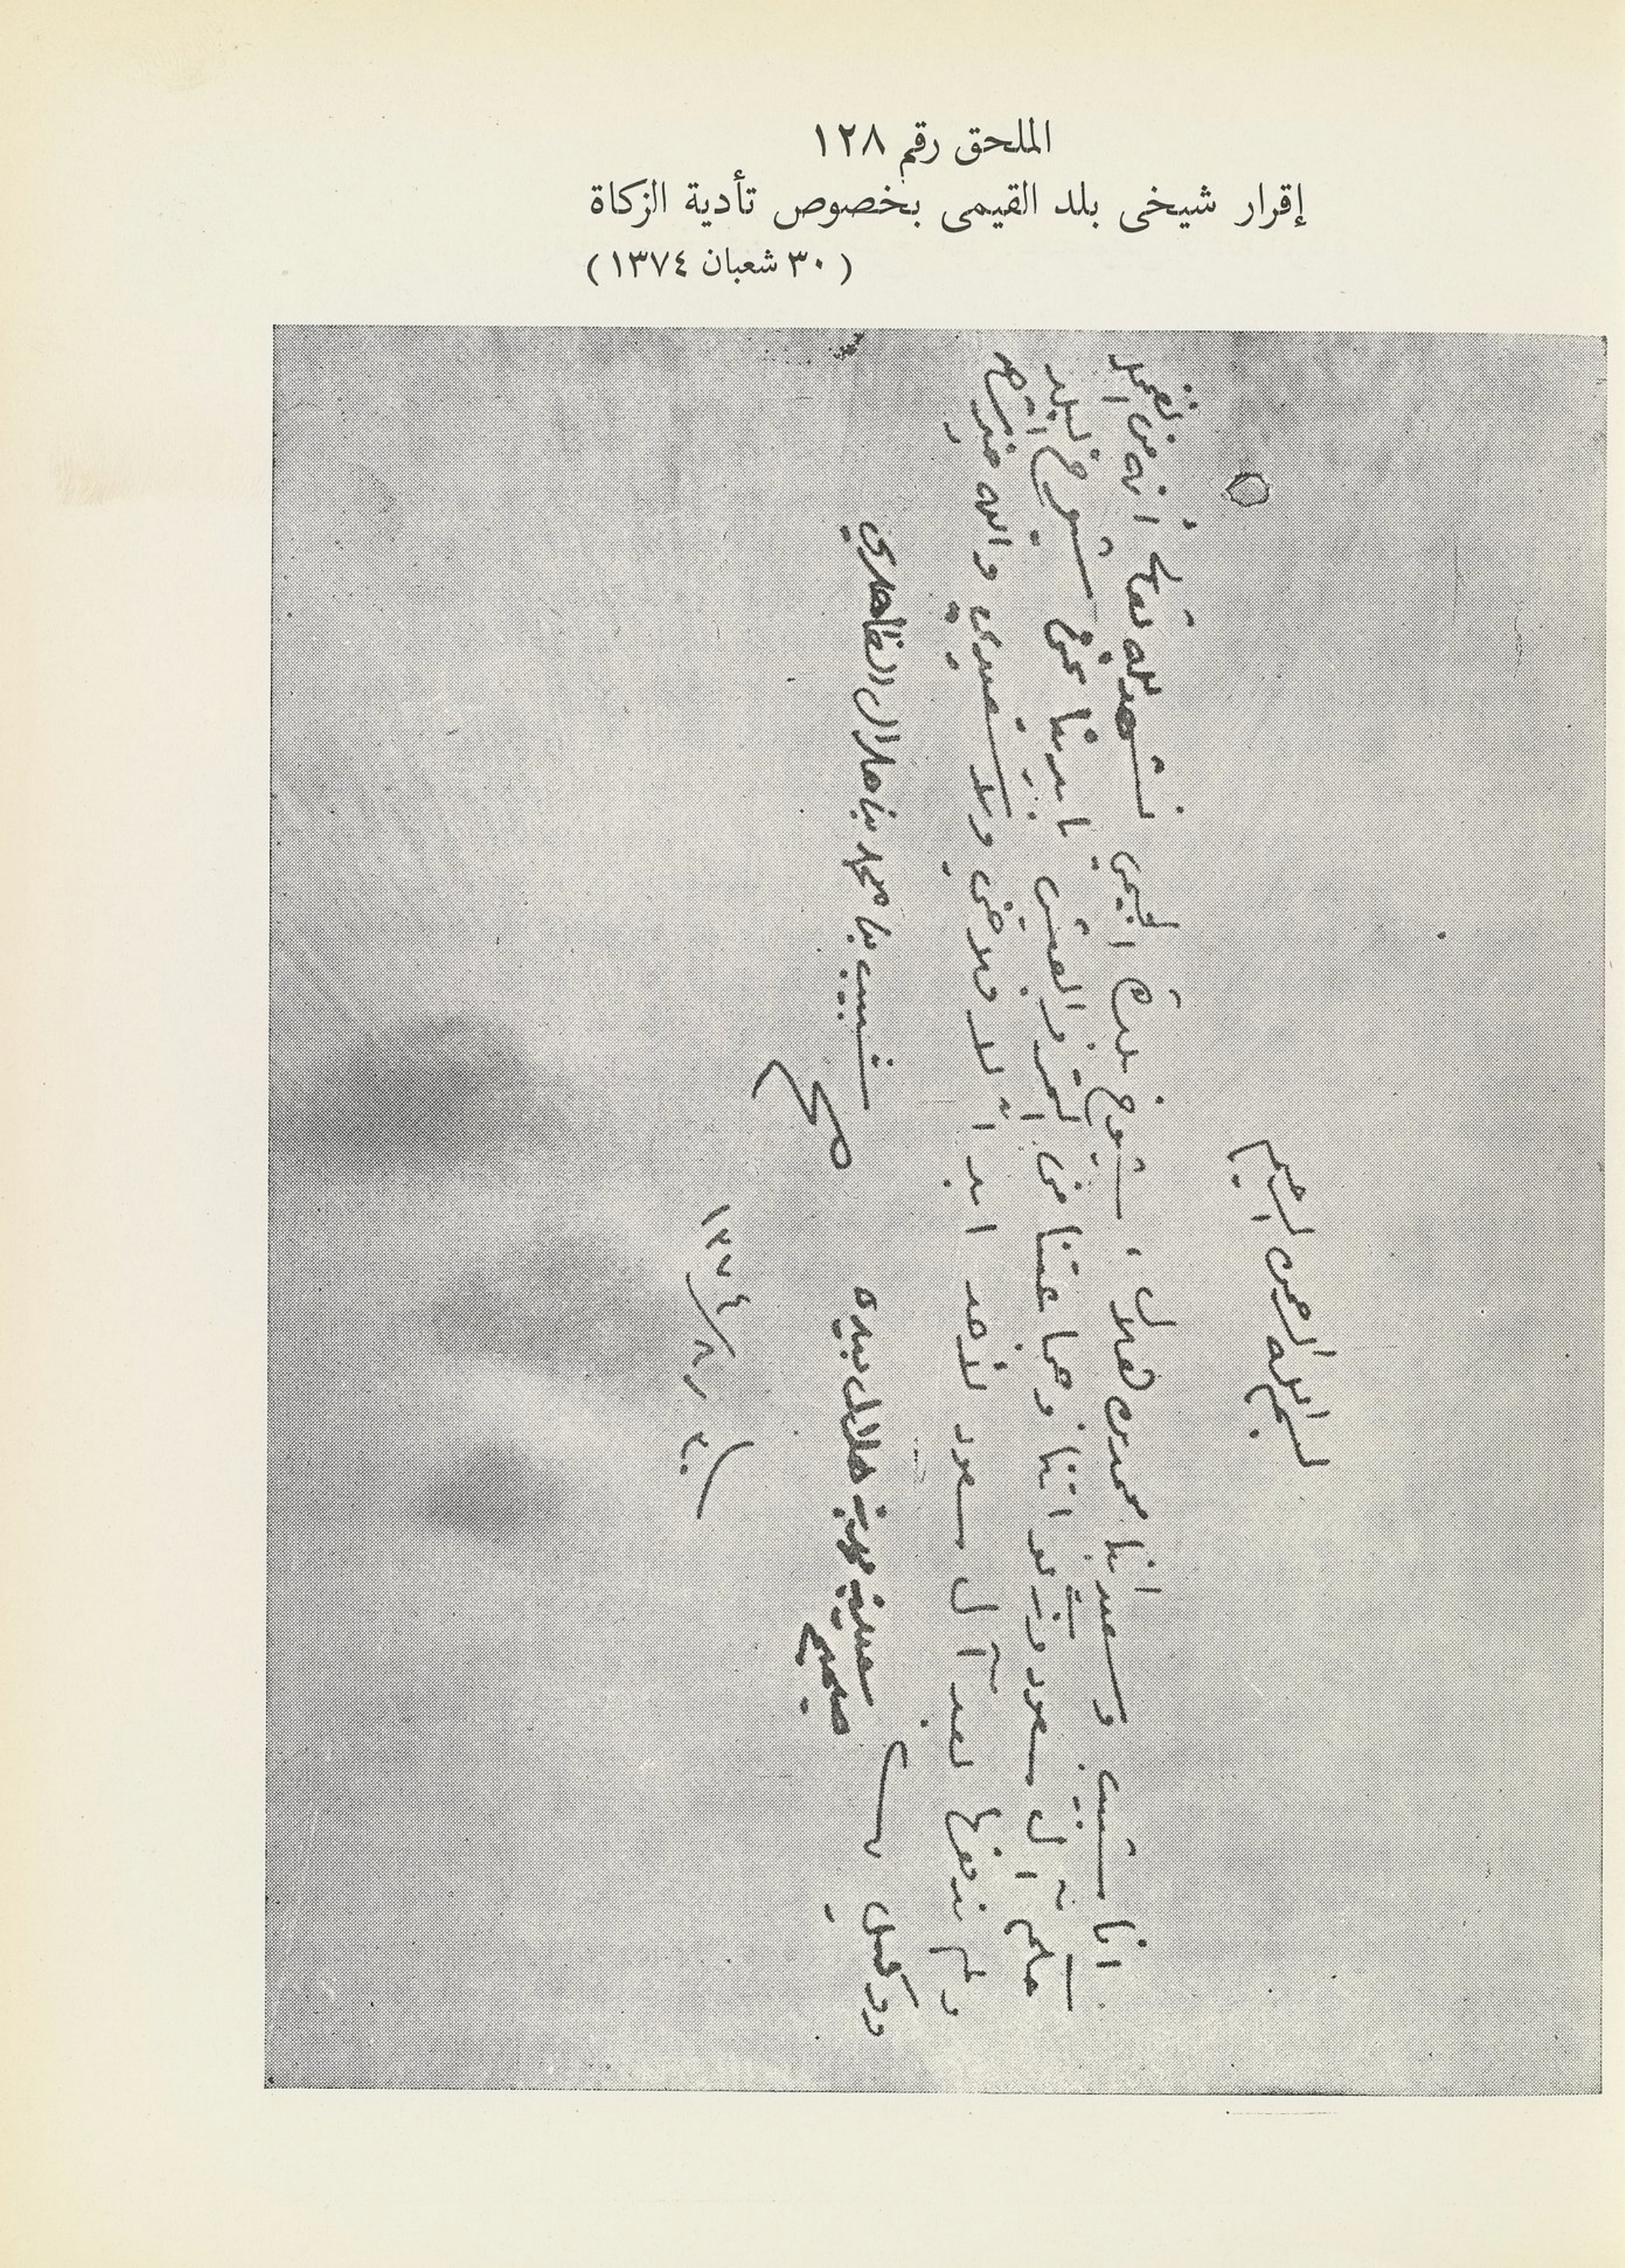 الملحق رقم ١٢٨
إقرار شيخى بلد القيمى بخصوص تأدية الزكاة
(٣٠ شعبان ١٣٧٤)
بسم الله الرحمن الرحيم
انا شبيب وسعيد ابنا محمد بن هلال، شيوخ بلدة القيمي نشهد لله تعالى أنه من
حكم آل سعود وزكواتنا وجماعتنا من التمر والعيش يا بدينا نحن شيوخ البلد
ولم ندفعها لعبد آل سعود لأحد ابدا لا ولا سعيدي والله خير
ووكيل
شبيب بن محمد بن هلال الظاهري
صح
سعيد بن محمد بن هلال بيده
صحيح
٣٠ / ٨ / ١٣٧٤